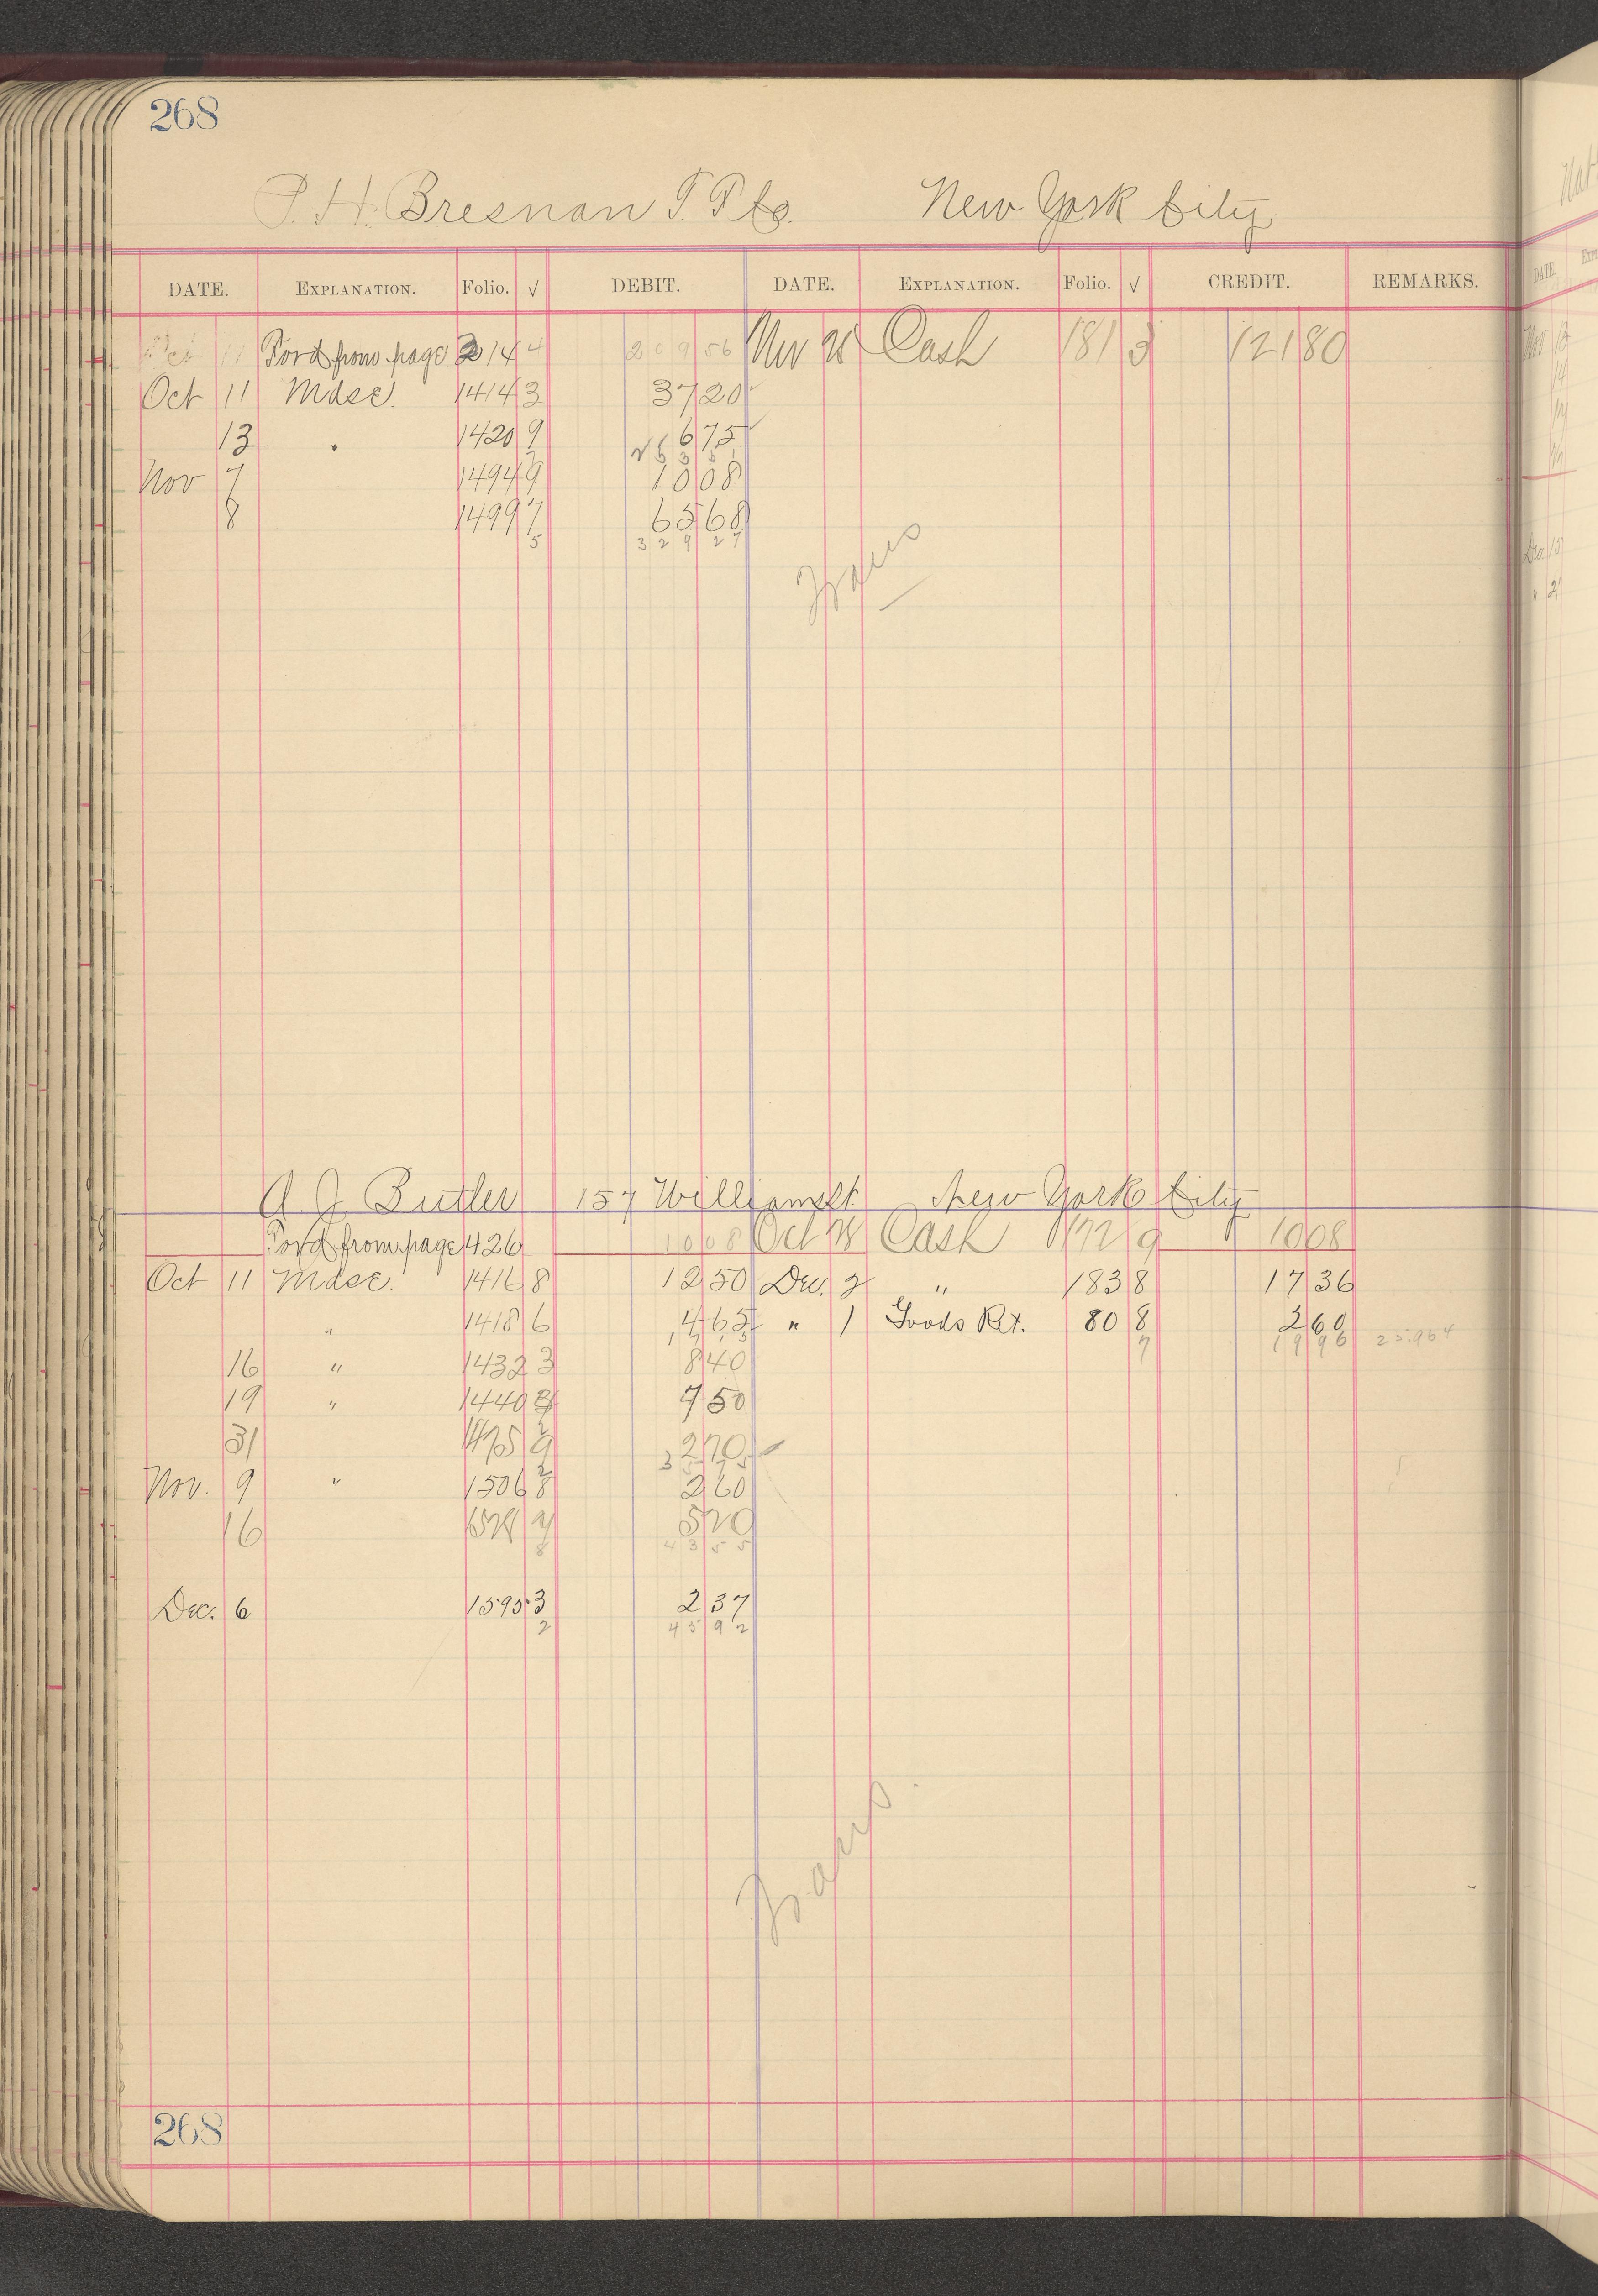 268
P. H. Bresnan T. P Co. New York City
DATE. EXPLANATION. Folio. √ DEBIT. DATE. EXPLANATION. Folio. √ CREDIT. REMARKS.
Oct 11 Ford from page 214 4 209 56 Nov 25 Cash 181 3 121 80
Oct 11 Mdse. 1414 3 37 20
13 " 1420 9 6 75
Nov 7 1494 9 10 08
8 1499 7 65 68
5 329 27
Trans
A. J. Butler 157 William St New York City
Ford from page 426 10 08 Oct 28 Cash 172 9 10 08
Oct 11 Mdse. 1416 8 12 50 Dec. 2 " 183 8 17 36
" 1418 6 4 65 " 1 Goods Ret. 80 8 2 60
7 19 96
16 " 1432 3 8 40
19 " 1440 7 50
31 1475 9 2 70
Nov. 9 " 1506 8 2 60
16 5 20
8 43 55
Dec. 6 1595 3 2 37
2 45 92
Trans.
268